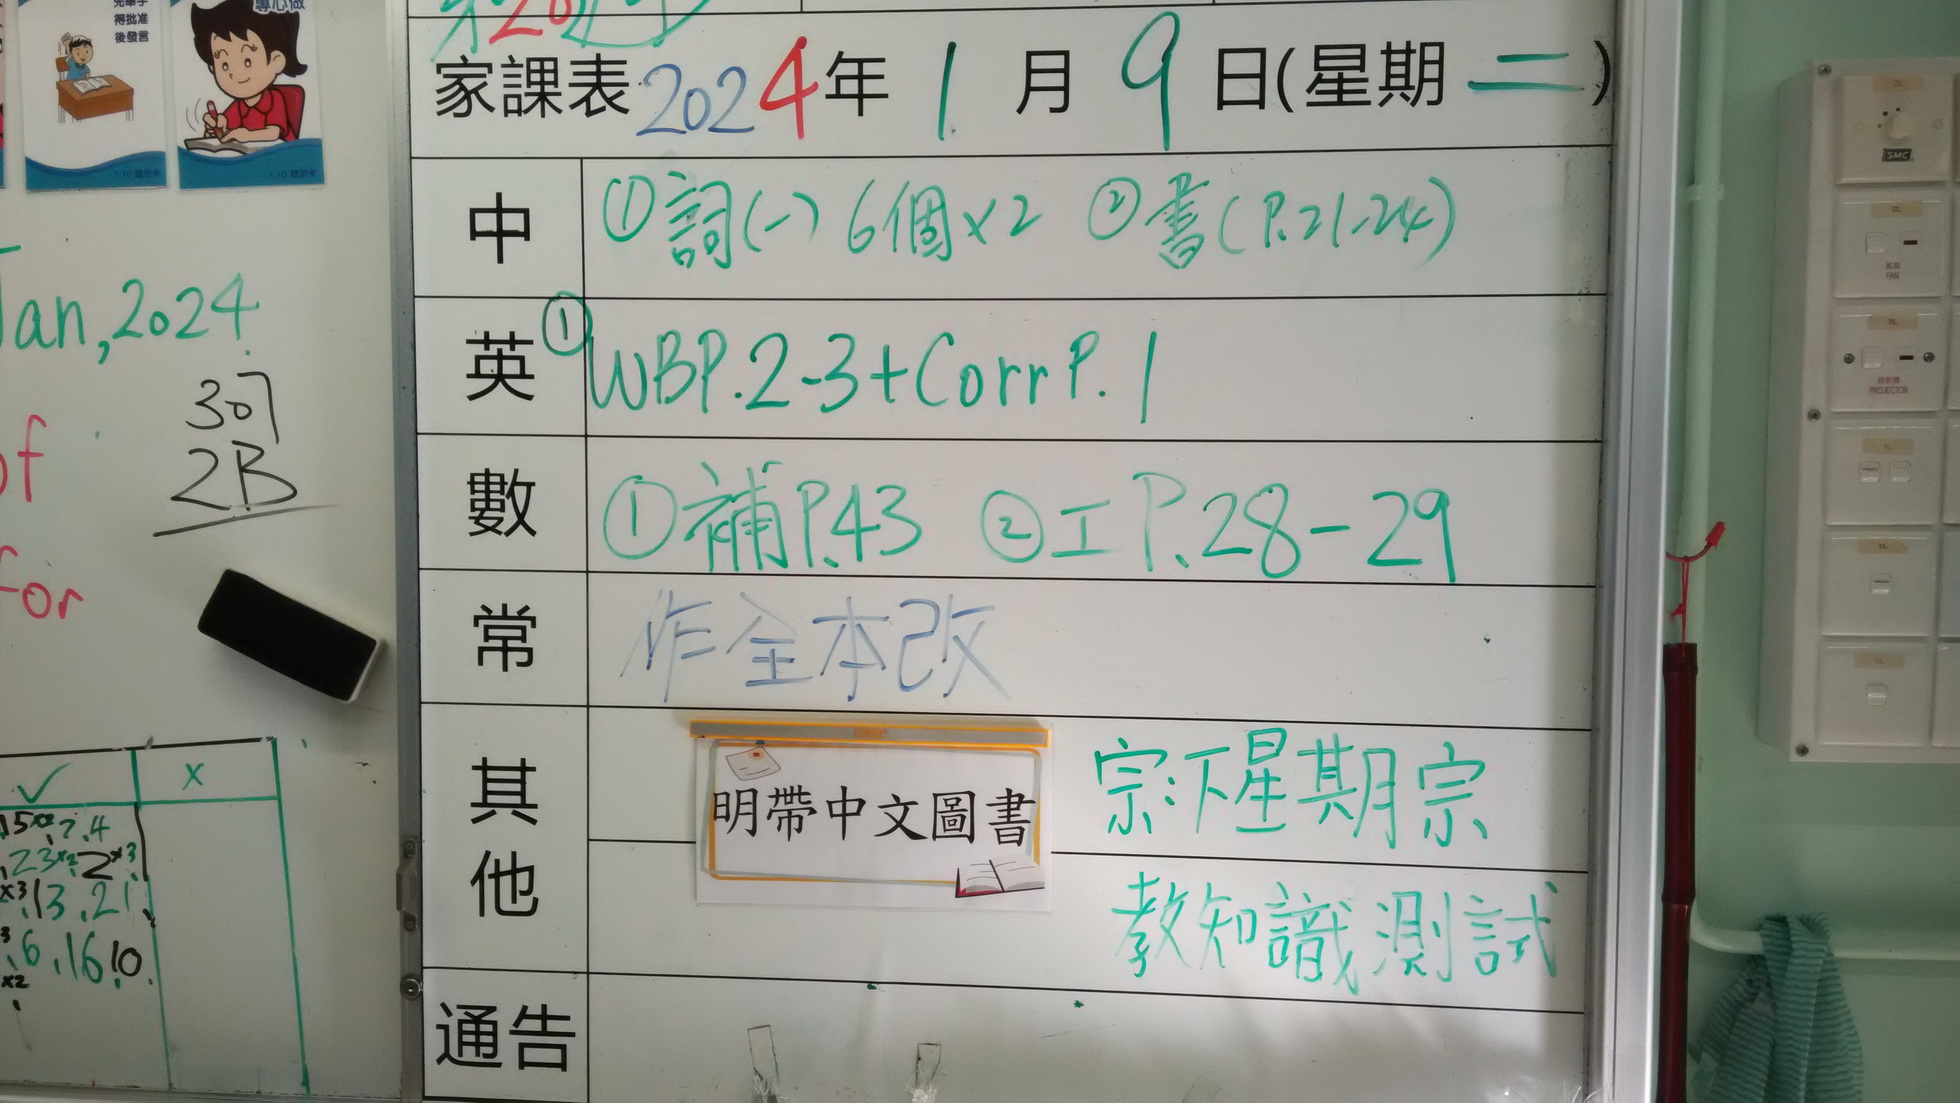 先舉手
得批准
後發言
專心做
1.10 提示卡
1.10 提示卡
Jan, 2024
307
2B
of
for
✓ x
家課表 2024年1月9日(星期二)
中 ①詞(一)6個x2 ②書(P.21-24)
英 ①WBP.2-3+Corr P.1
數 ①補P.43 ②工P.28-29
常 作全本改
其他 明帶中文圖書 宗:下星期宗
教知識測試
通告
SMC
FAN
PROJECTOR